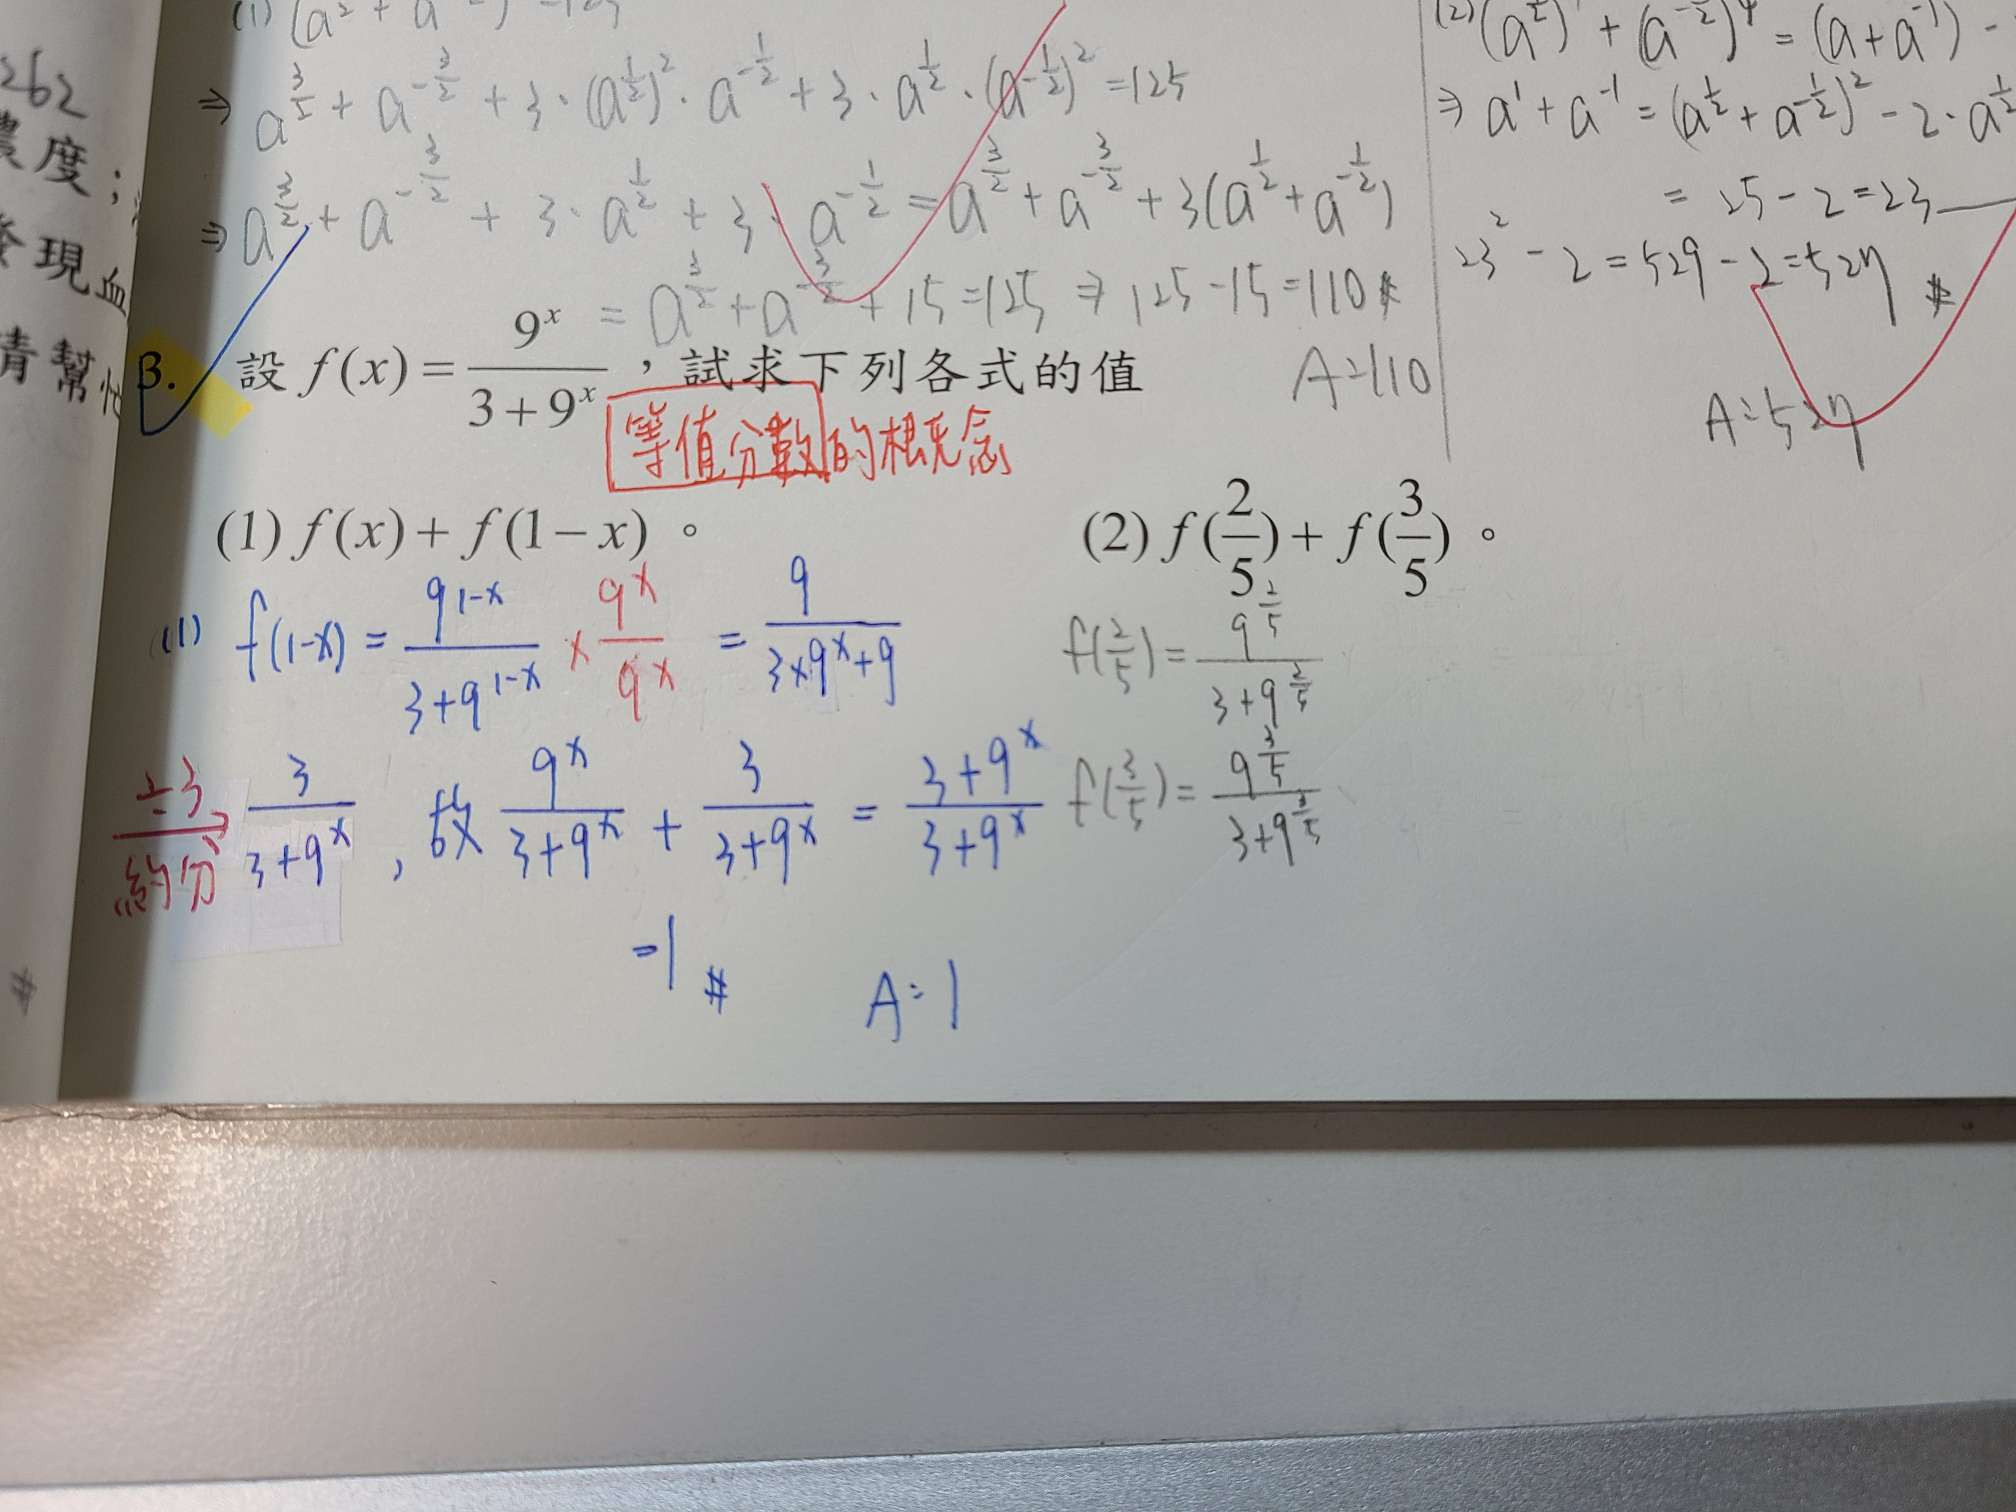 262
濃度；
現血
請幫忙
⇒ a^{3/5} + a^{-3/2} + 3·(a^{1/2})²·a^{-1/2} + 3·a^{1/2}·(a^{-1/2})² = 125
⇒ a^{3/2} + a^{-3/2} + 3·a^{1/2} + 3·a^{-1/2} = a^{3/2} + a^{-3/2} + 3(a^{1/2} + a^{-1/2})
= a^{3/2} + a^{-3/2} + 15 = 125 ⇒ 125 - 15 = 110 #
A = 110
⇒ a¹ + a^{-1} = (a^{1/2} + a^{-1/2})² - 2·a^{1/2}
= 25 - 2 = 23
23² - 2 = 529 - 2 = 527 #
A = 527
3. 設 f(x) = 9^x/(3+9^x)，試求下列各式的值
等值分數的概念
(1) f(x) + f(1-x)。
(2) f(2/5) + f(3/5)。
(1) f(1-x) = 9^{1-x}/(3+9^{1-x}) × 9^x/9^x = 9/(3×9^x+9)
÷3 約分 → 3/(3+9^x)，故 9^x/(3+9^x) + 3/(3+9^x) = (3+9^x)/(3+9^x)
=1 #
A = 1
f(2/5) = 9^{2/5}/(3+9^{2/5})
f(3/5) = 9^{3/5}/(3+9^{3/5})
#